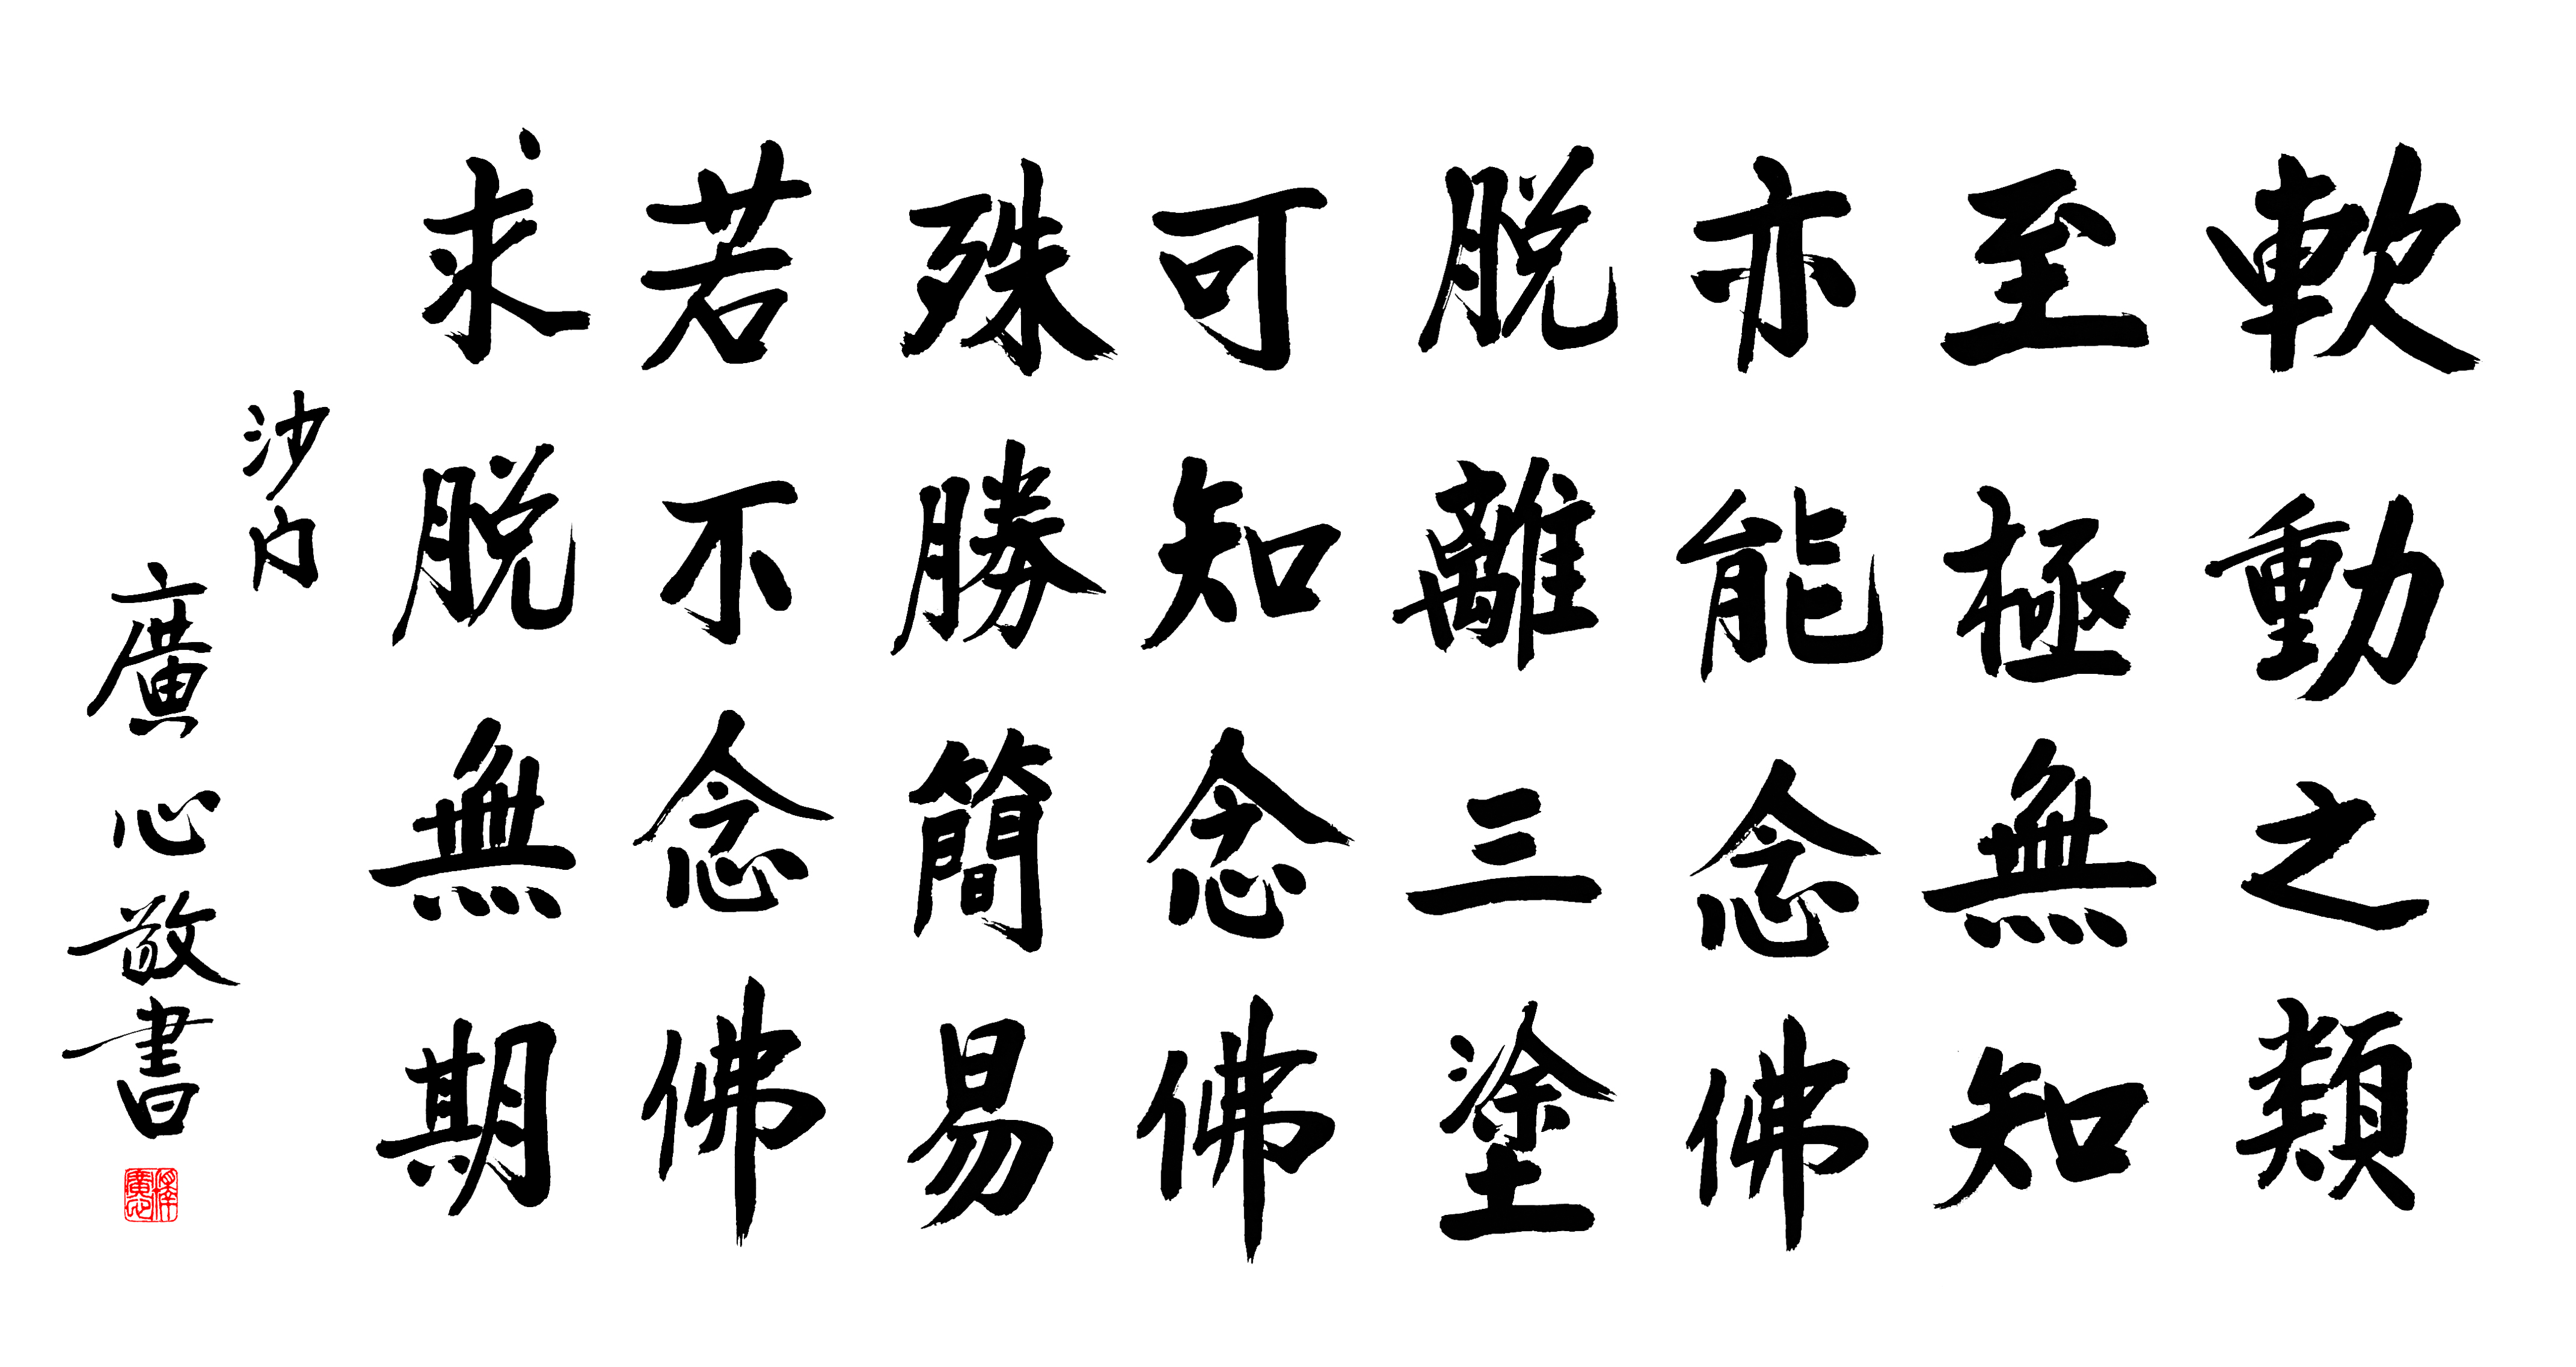 軟動之類
至極無知
亦能念佛
脱離三塗
可知念佛
殊勝簡易
若不念佛
求脱無期
沙門
廣心敬書
釋廣心